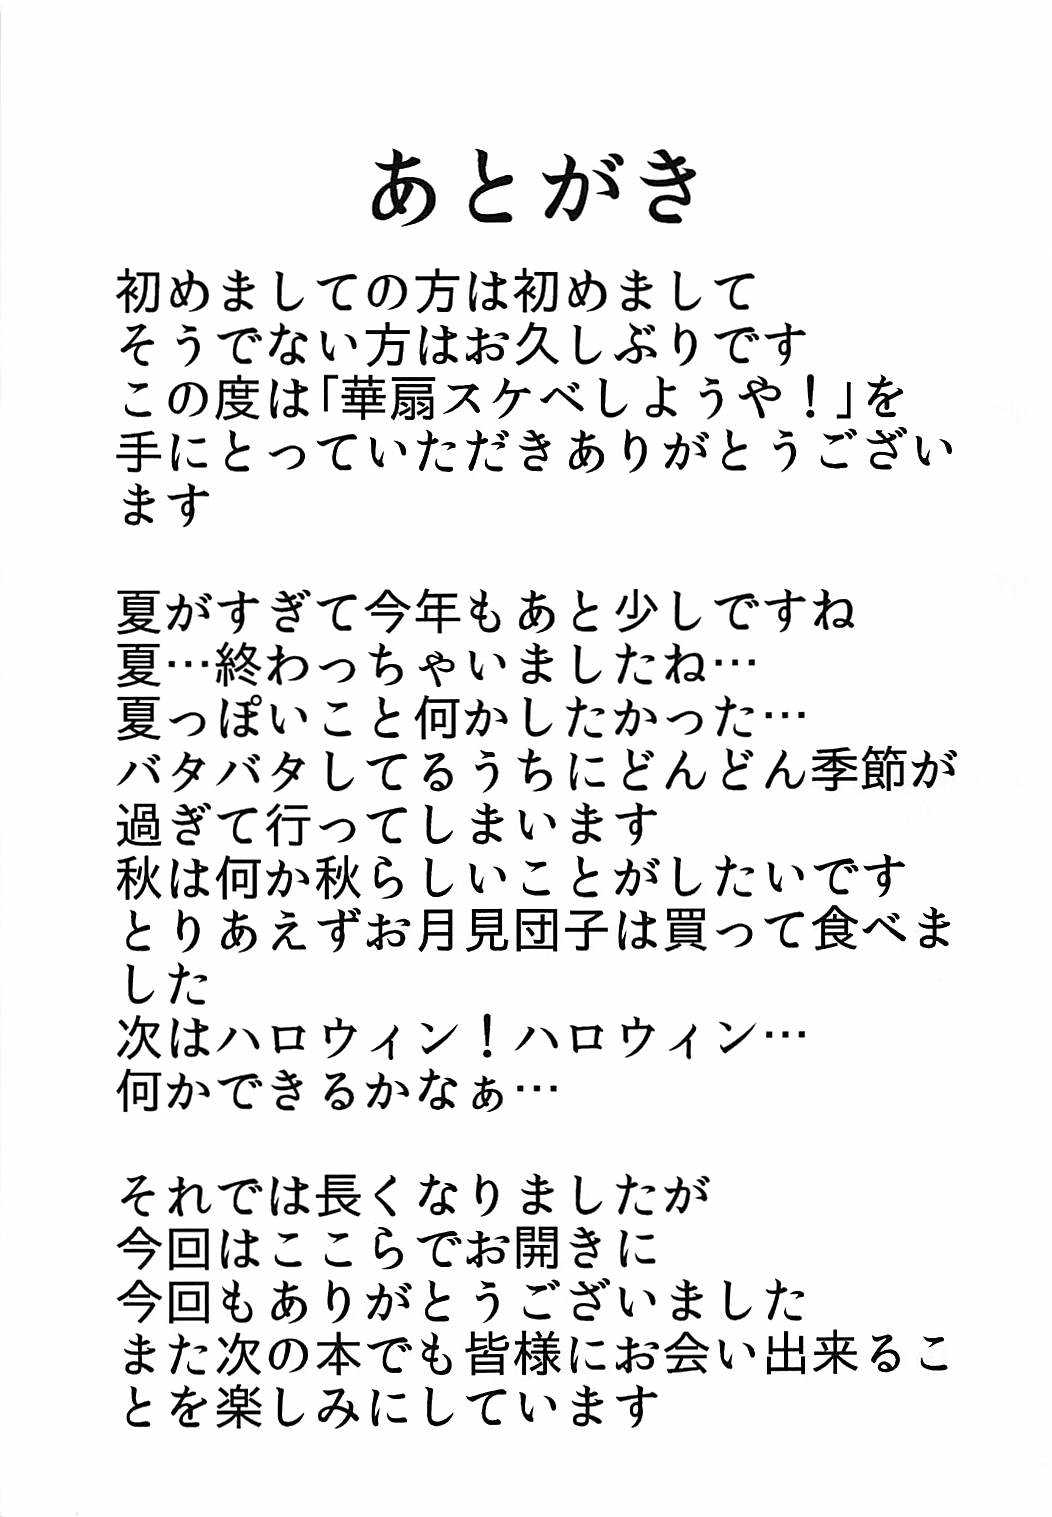 あとがき
初めましての方は初めまして
そうでない方はお久しぶりです
この度は「華扇スケベしようや！」を
手にとっていただきありがとうござい
ます
夏がすぎて今年もあと少しですね
夏…終わっちゃいましたね…
夏っぽいこと何かしたかった…
バタバタしてるうちにどんどん季節が
過ぎて行ってしまいます
秋は何か秋らしいことがしたいです
とりあえずお月見団子は買って食べま
した
次はハロウィン！ハロウィン…
何かできるかなぁ…
それでは長くなりましたが
今回はここらでお開きに
今回もありがとうございました
また次の本でも皆様にお会い出来るこ
とを楽しみにしています